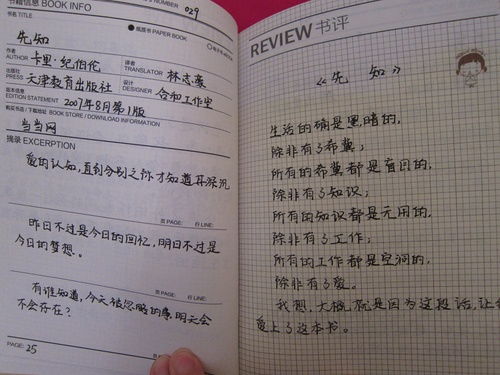 书籍信息 BOOK INFO
NUMBER 029
书名 TITLE
纸质书 PAPER BOOK
先知
作者
AUTHOR 卡里·纪伯伦
译者
TRANSLATOR 林志豪
出版社
PRESS 天津教育出版社
设计
DESIGNER 合和工作室
版本信息
EDITION STATEMENT 2007年8月第1版
购买书店/下载地址 BOOK STORE / DOWNLOAD INFORMATION
当当网
摘录 EXCERPTION
爱的认知,直到分别之际才知道其深沉
页 PAGE: 行 LINE:
昨日不过是今日的回忆,明日不过是
今日的梦想。
页 PAGE: 行 LINE:
有谁知道,今天被忽略的事,明天会
不会存在?
PAGE: 25
REVIEW 书评
《先 知》
生活的确是黑暗的,
除非有了希冀;
所有的希冀都是盲目的,
除非有了知识;
所有的知识都是无用的,
除非有了工作;
所有的工作都是空洞的,
除非有了爱。
我想,大概就是因为这段话,让
爱上了这本书。